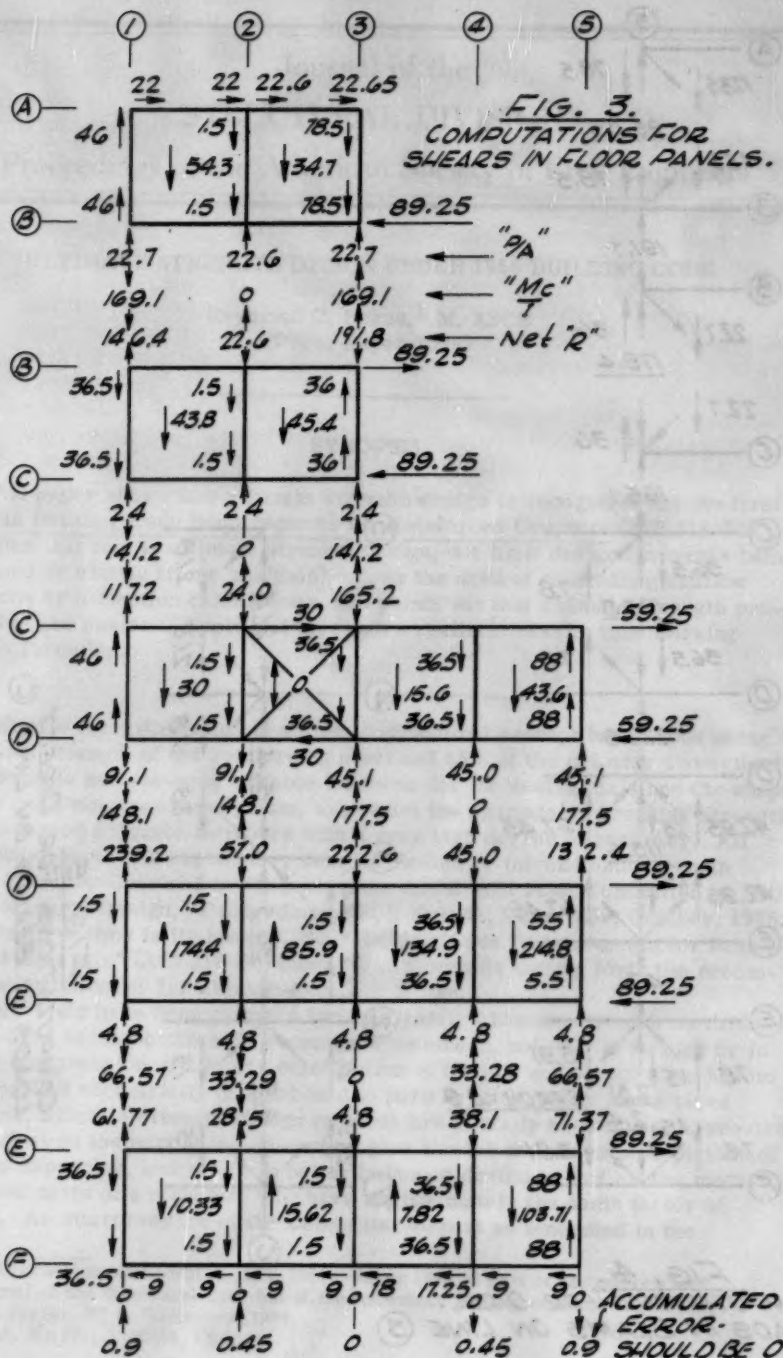 ① ② ③ ④ ⑤
22 22 22.6 22.65
Ⓐ FIG. 3.
46 1.5 78.5 COMPUTATIONS FOR
54.3 34.7 SHEARS IN FLOOR PANELS.
46 1.5 78.5
Ⓑ 89.25
22.7 22.6 22.7 "P/A"
169.1 0 169.1 "Mc/I"
146.4 22.6 191.8 Net "R"
Ⓑ 89.25
36.5 1.5 36
43.8 45.4
36.5 1.5 36
Ⓒ 89.25
24 24 24
141.2 0 141.2
117.2 24.0 165.2
Ⓒ 30 59.25
46 1.5 36.5 36.5 88
30 0 15.6 43.6
46 1.5 36.5 36.5 88
Ⓓ 30 59.25
91.1 91.1 45.1 45.0 45.1
148.1 148.1 177.5 0 177.5
239.2 57.0 222.6 45.0 132.4
Ⓓ 89.25
1.5 1.5 1.5 36.5 5.5
174.4 85.9 134.9 214.8
1.5 1.5 1.5 36.5 5.5
Ⓔ 89.25
4.8 4.8 4.8 4.8 4.8
66.57 33.29 0 33.28 66.57
61.77 28.5 4.8 38.1 71.37
Ⓔ 89.25
36.5 1.5 1.5 36.5 88
10.33 15.62 7.82 103.71
36.5 1.5 1.5 36.5 88
Ⓕ
9 9 9 9 18 17.25 9 9
0 0 0 0 0 ACCUMULATED
0.9 0.45 0 0.45 0.9 ERROR-
SHOULD BE 0